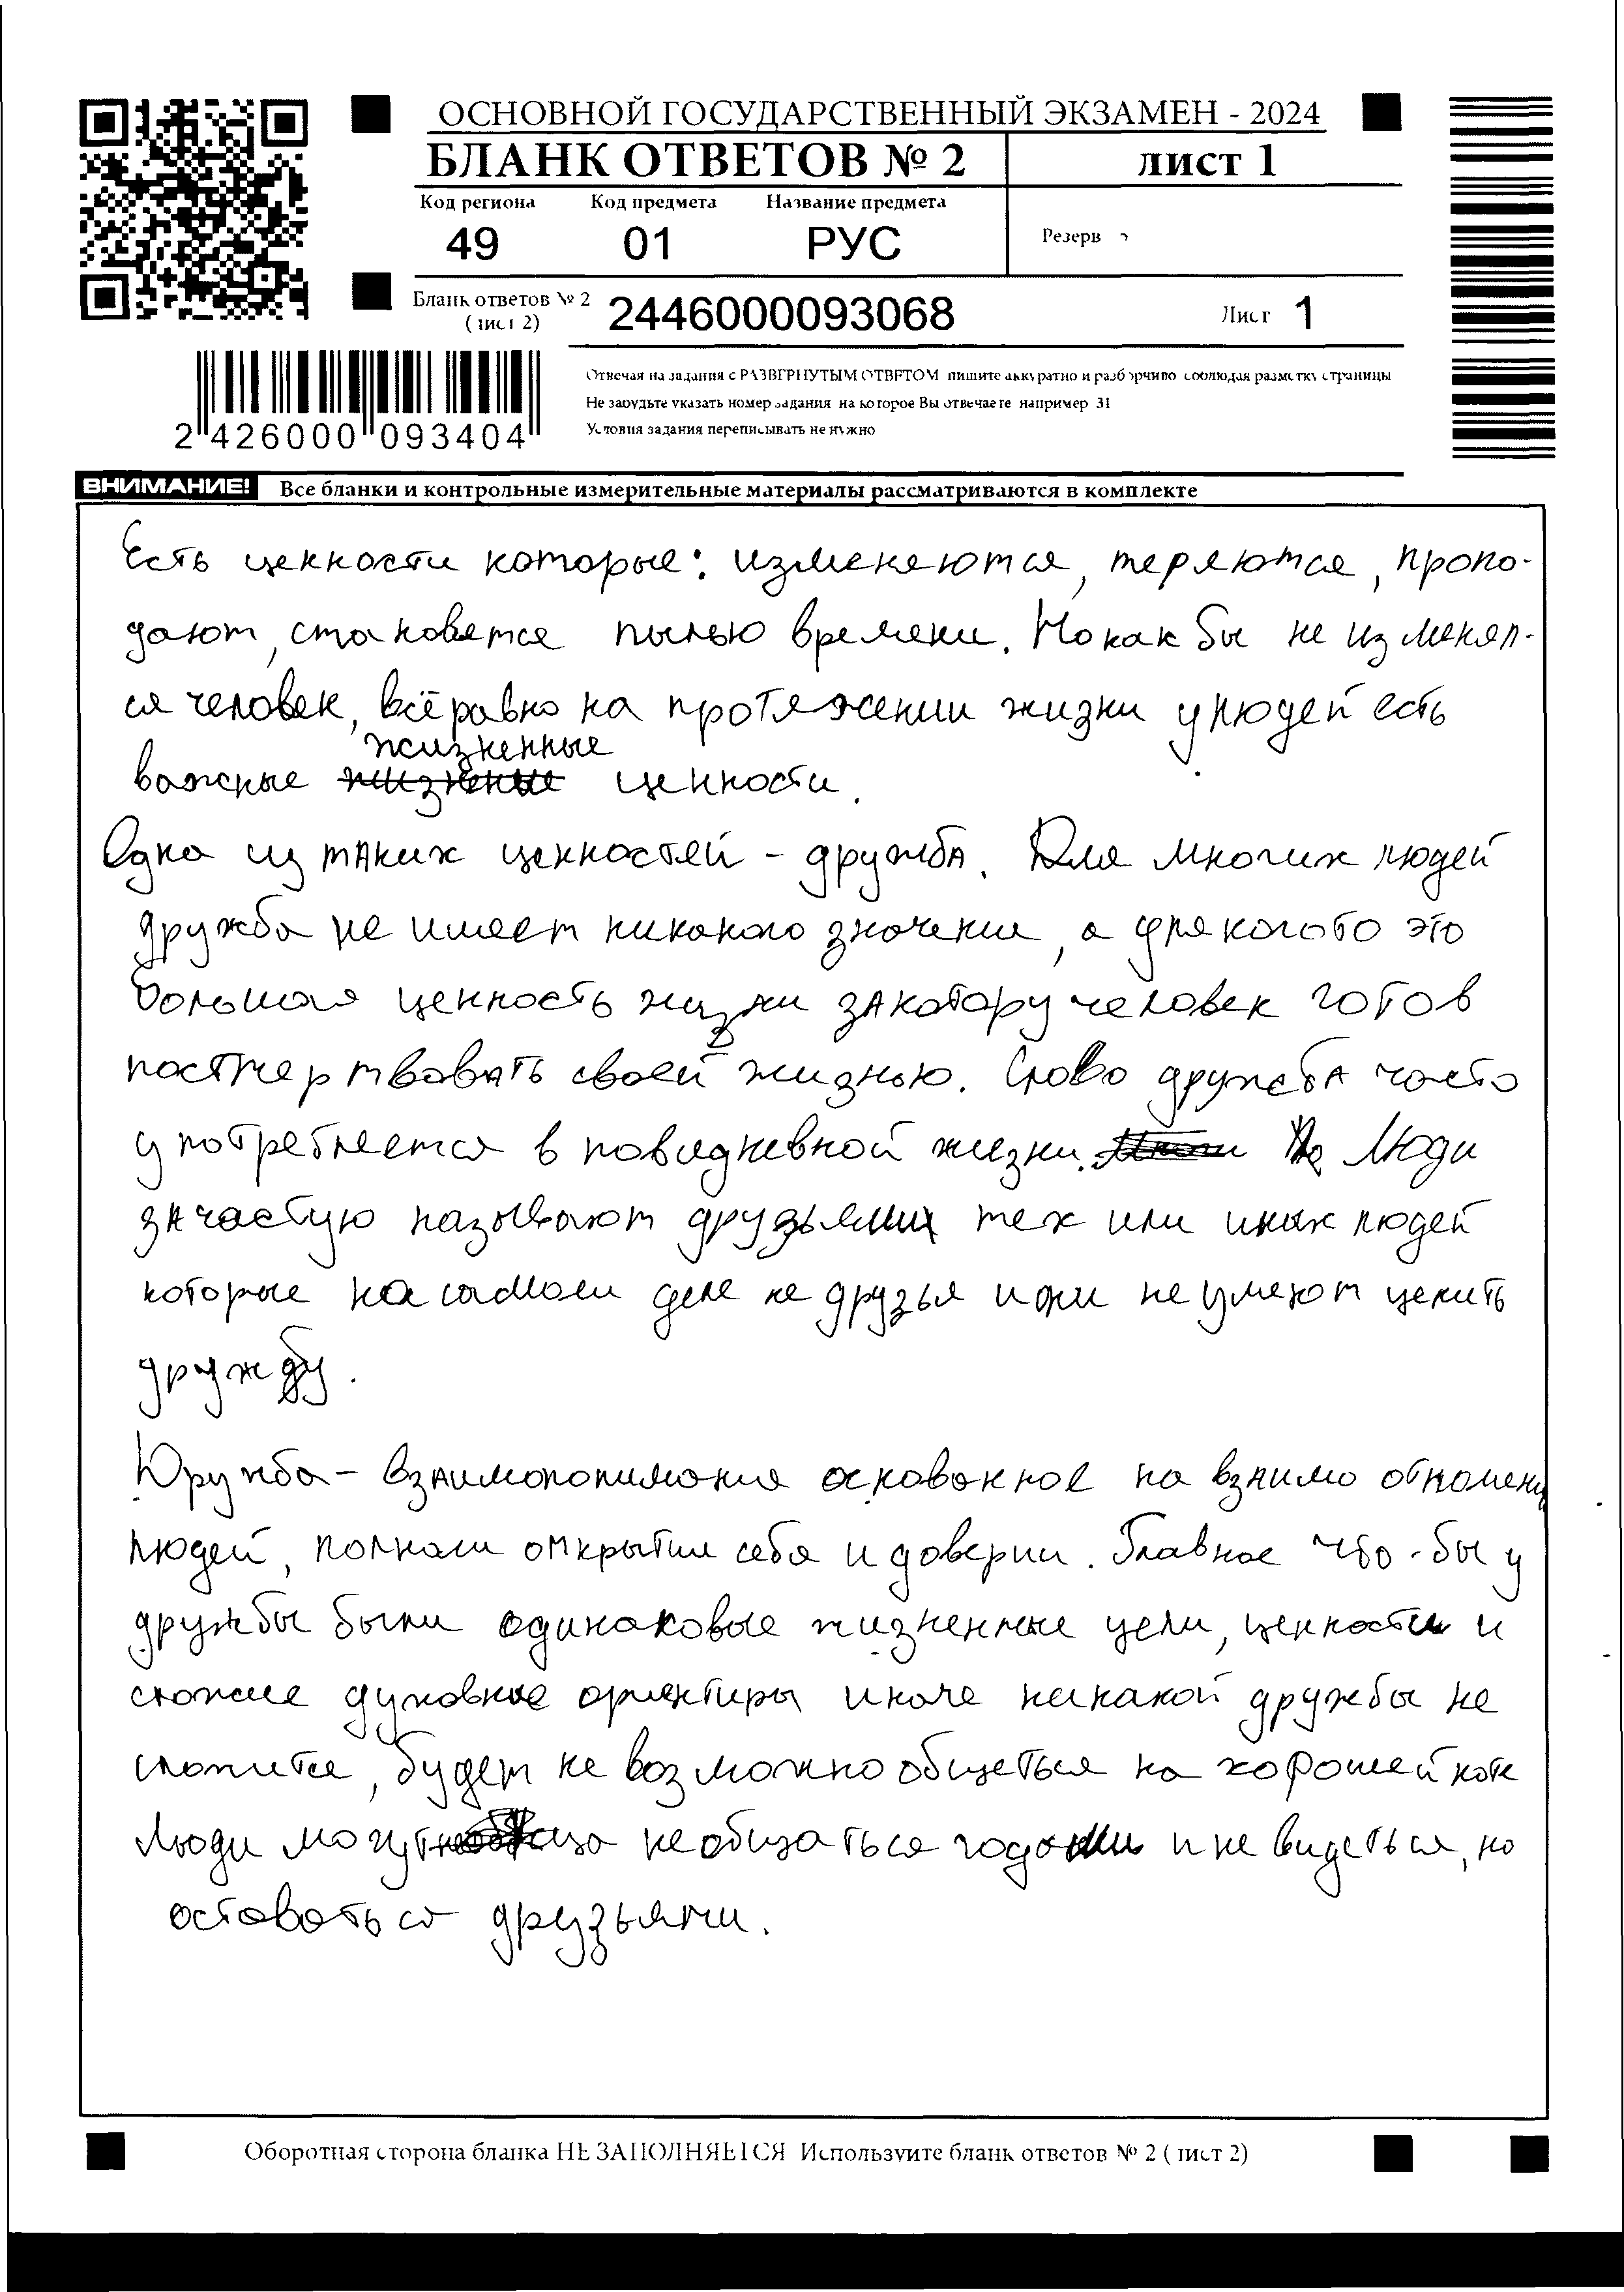 ОСНОВНОЙ ГОСУДАРСТВЕННЫЙ ЭКЗАМЕН - 2024
БЛАНК ОТВЕТОВ № 2
лист 1
Код региона Код предмета Название предмета
49 01 РУС
Резерв
Бланк ответов № 2
(лист 2)
2446000093068
Лист 1
2 426000 093404
Отвечая на задания с РАЗВЕРНУТЫМ ОТВЕТОМ пишите аккуратно и разборчиво соблюдая разметку страницы
Не забудьте указать номер задания на которое Вы отвечаете например 31
Условия задания переписывать не нужно
ВНИМАНИЕ! Все бланки и контрольные измерительные материалы рассматриваются в комплекте
Есть ценности которые: изменеются, теряются, пропо-
дают, становятся пылью времени. Но как бы не изменял-
ся человек, всёравно на протяжении жизни у людей есть
жизненные
важные ценности.
Одна из таких ценностей - дружба. Для многих людей
дружба не имеет никакого значение, а для когото это
большая ценность жизни закотору человек готов
постжертвовать своей жизнью. Слово дружба часто
употребляется в повидневной жизни. Люди
зачастую называют друзьями тех или иных людей
которые на самом деле не друзья или не умеют ценить
дружбу.
Дружба - взаимопонимание основанное на взаимо отношени
людей, полном открытии себя и доверии. Главное что-бы у
дружбы были одинаковые жизненные цели, ценности и
схожие духовные ориентиры иначе никакой дружбы не
сложится, будет не возможно общеться на хорошей ноте
Люди могут необщаться годами и не видеться, но
оставаться друзьями.
Оборотная сторона бланка НЕ ЗАПОЛНЯЕТСЯ Используйте бланк ответов № 2 (лист 2)